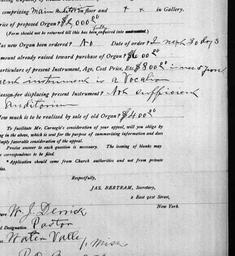 comprising Main Auditorium floor and " x " in Gallery.
of proposed Organ? $2,000.00
(Form should not be returned till this has been entered into
was now Organ ordered? No Date of order? In next 30 days
amount already raised toward purchase of Organ? $600
particulars of present Instrument, Age, Cost Price, Etc. $800
ent instrument is a Vocalion
reason for displacing present Instrument? Not sufficient
Auditorium
How much is to be realized by sale of old Organ? $400.00
To facilitate Mr. Carnegie's consideration of your appeal, will you oblige by
ing in the above, which is sent for the purpose of summarizing information and does
imply favorable consideration of the appeal.
Precise answer to each question is necessary. The issuing of blanks may
correspondence to be filed.
* Application should come from Church authorities and not from private
Respectfully,
JAS. BERTRAM, Secretary,
2 East 91st Street,
New York.
W. J. Derrick
Designation Pastor
Water Valley, Miss
P.O.